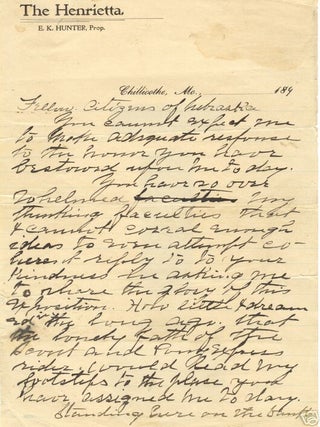 The Henrietta.
E. K. HUNTER, Prop.
Chillicothe, Mo., 189
Fellow Citizens of Nebraska
You cannot expect me
to make adequate response
to the honor you have
bestowed upon me to day.
You have so over
whelmed my
thinking faculties that
I cannot corral enough
ideas to even attempt co-
herent reply to to your
kindness in asking me
to share the glory of this
exposition. How little I dream
ed in the long ago, that
the lonely path of the
scout and Pony Express
rider, would lead my
footsteps to the place you
have assigned me to day.
Standing here on the